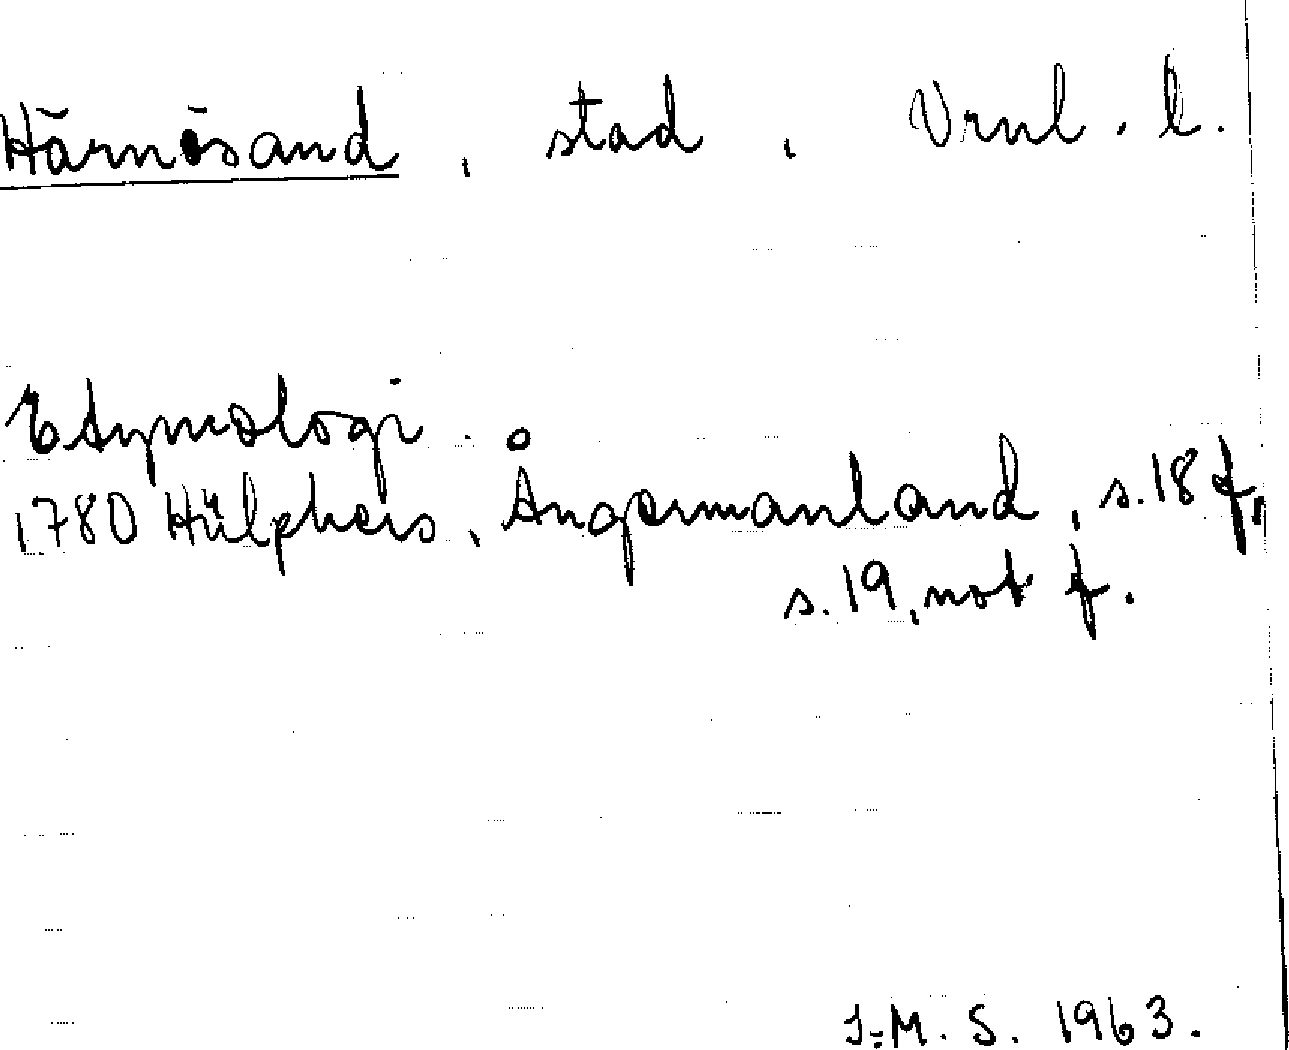 Härnösand, stad, Vrnl. l.
Etymologi.
1780 Hülphers, Ångermanland, s. 18 f,
s. 19, not f.
I-M. S. 1963.